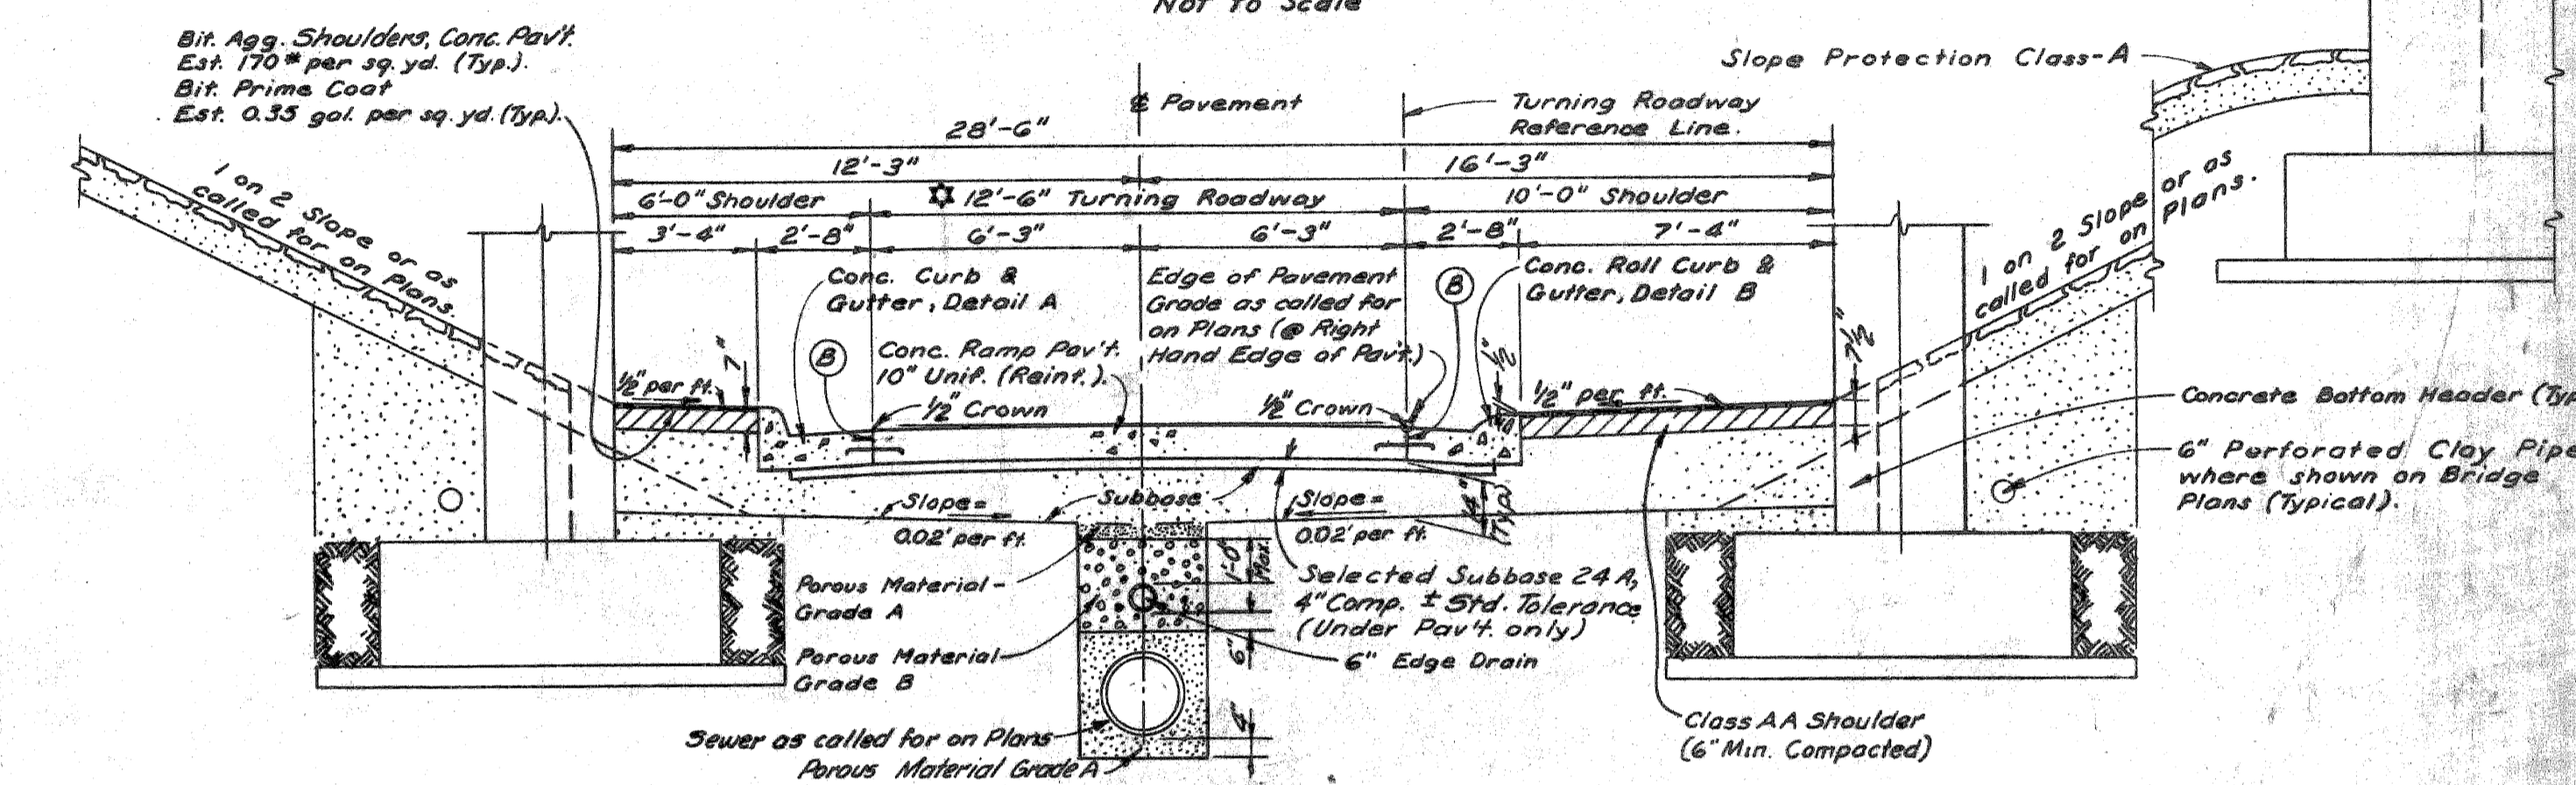 Not to Scale
Bit. Agg. Shoulders, Conc. Pav't.
Est. 170# per sq. yd. (Typ.).
Bit. Prime Coat
Est. 0.35 gal. per sq. yd. (Typ.).
Slope Protection Class-A
℄ Pavement
Turning Roadway
Reference Line.
28'-6"
12'-3"
16'-3"
6'-0" Shoulder
✡ 12'-6" Turning Roadway
10'-0" Shoulder
3'-4"
2'-8"
6'-3"
6'-3"
2'-8"
7'-4"
1 on 2 Slope or as
called for on Plans.
1 on 2 Slope or as
called for on Plans.
Conc. Curb &
Gutter, Detail A
Edge of Pavement
Grade as called for
on Plans (@ Right
Hand Edge of Pav't.)
B
Conc. Roll Curb &
Gutter, Detail B
B
Conc. Ramp Pav't.
10" Unif. (Reinf.).
7"
7½"
½" per ft.
½" Crown
½" Crown
½" per ft.
Concrete Bottom Header (Typ
6" Perforated Clay Pipe
where shown on Bridge
Plans (Typical).
Slope=
0.02' per ft.
Subbase
Slope=
0.02' per ft.
14"
(Typ.)
1'-0"
Max.
Porous Material-
Grade A
Selected Subbase 24A,
4" Comp. ± Std. Tolerance
(Under Pav't. only)
Porous Material
Grade B
6"
6" Edge Drain
4"
Sewer as called for on Plans
Porous Material Grade A
Class AA Shoulder
(6" Min. Compacted)